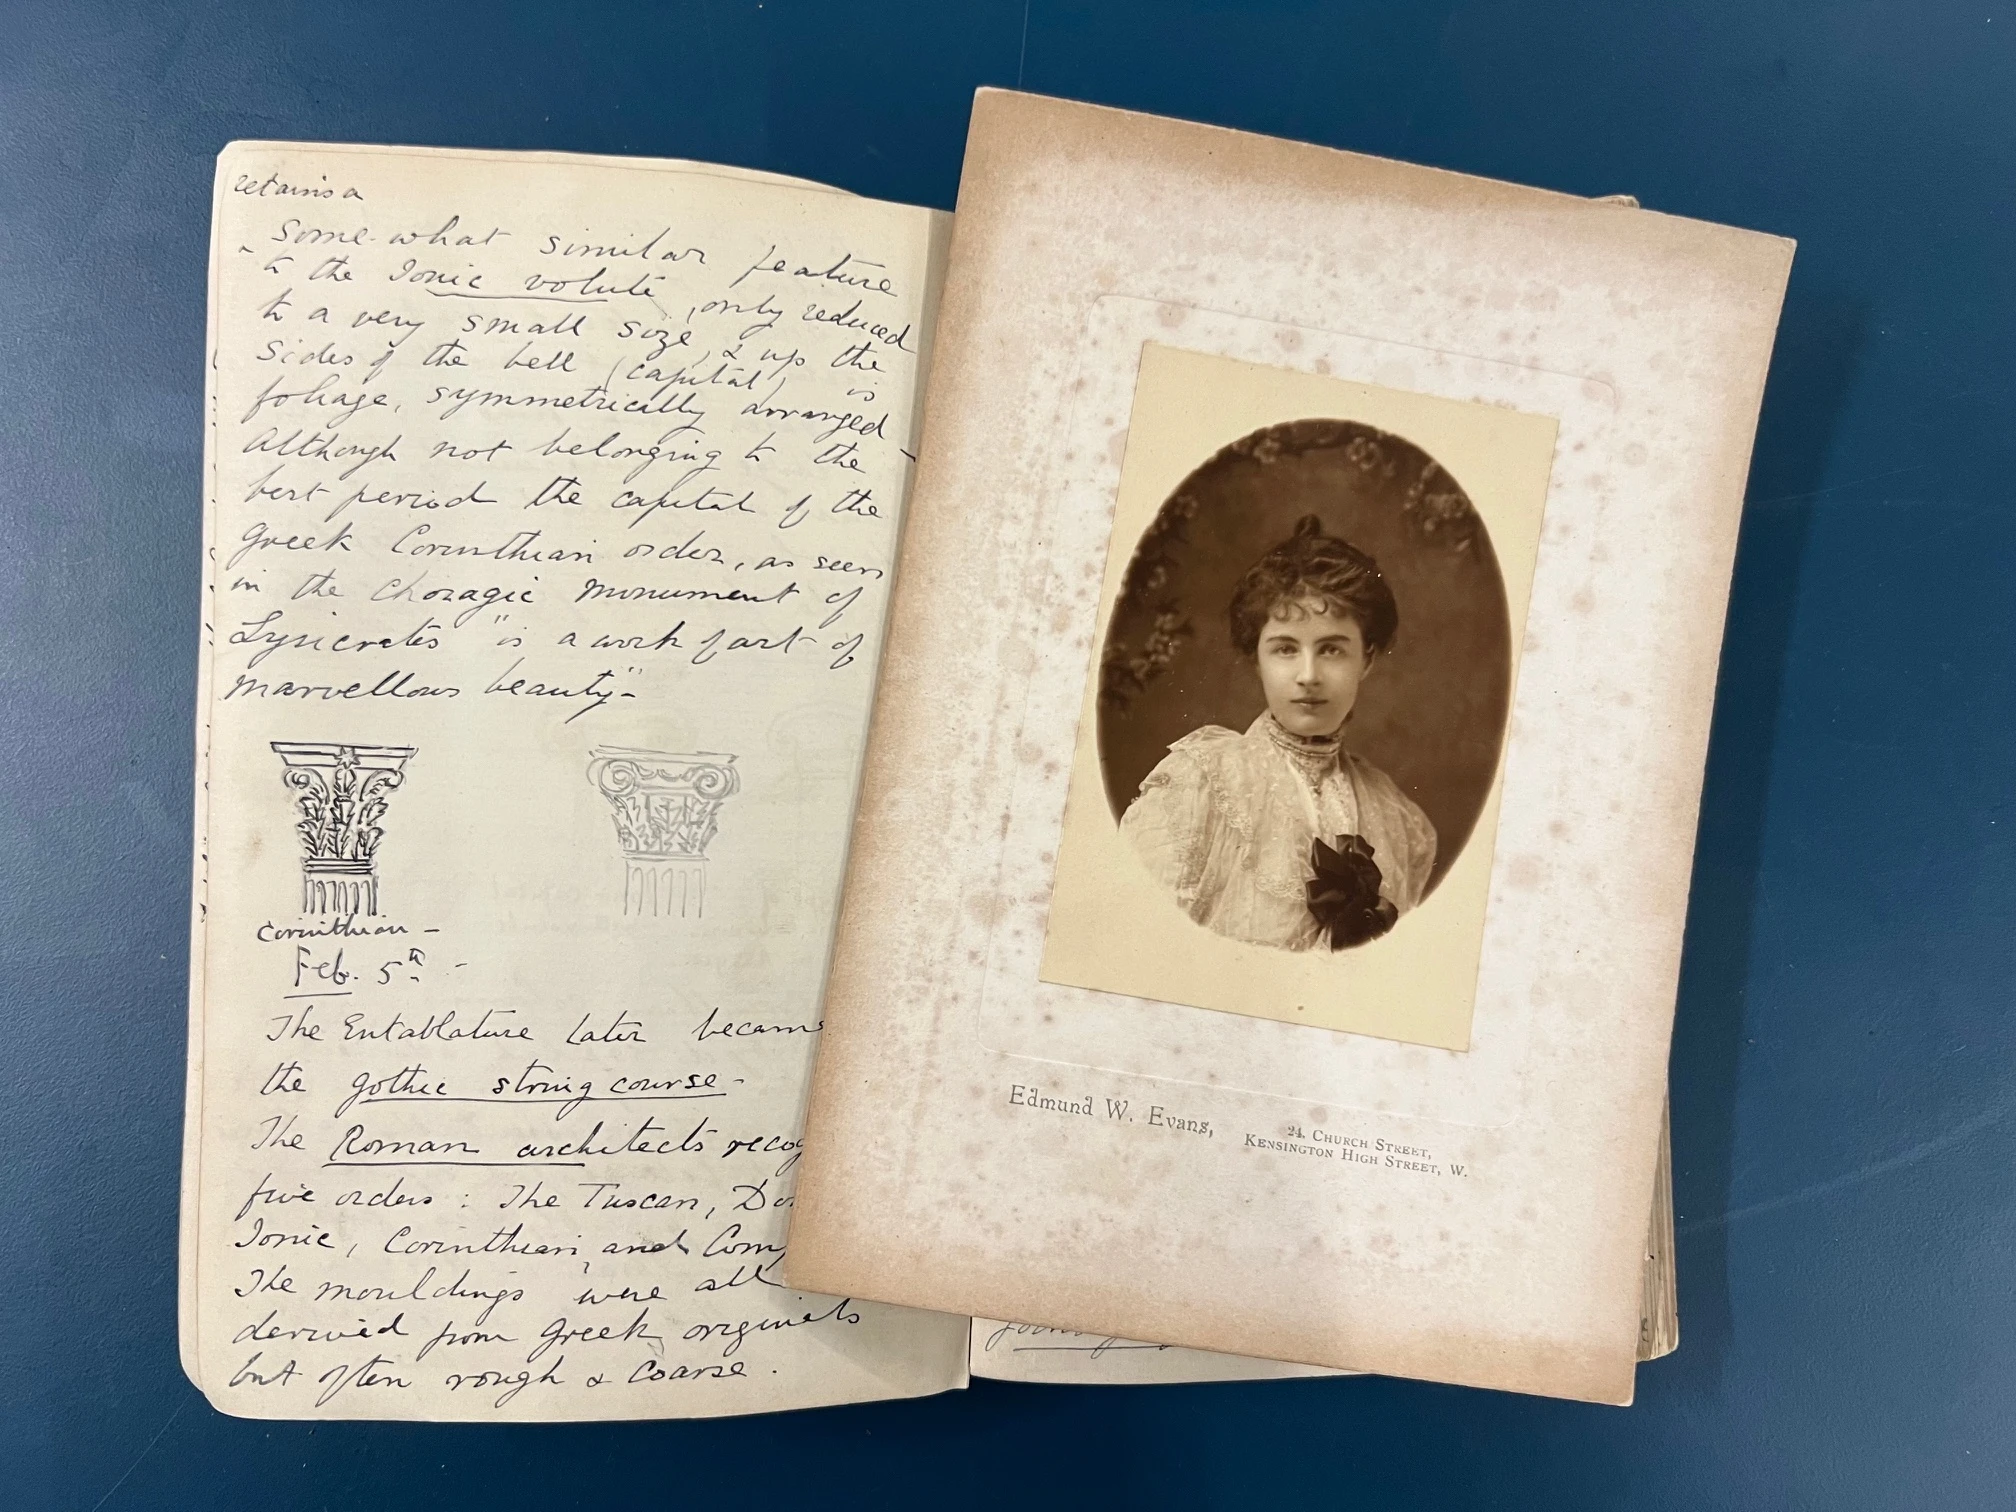 retains a
some-what similar feature
to the Ionic volute, only reduced
to a very small size, & up the
sides of the bell (capital) is
foliage, symmetrically arranged -
Although not belonging to the
best period the capital of the
Greek Corinthian order, as seen
in the Choragic monument of
Lysicrates "is a work of art of
marvellous beauty" -
Corinthian -
Feb. 5th -
The Entablature later became
the gothic string course -
The Roman architects recog
five orders: The Tuscan, Do
Ionic, Corinthian, and Com
The mouldings were all
derived from Greek originals
but often rough & coarse.
Edmund W. Evans,
24, Church Street,
Kensington High Street, W.